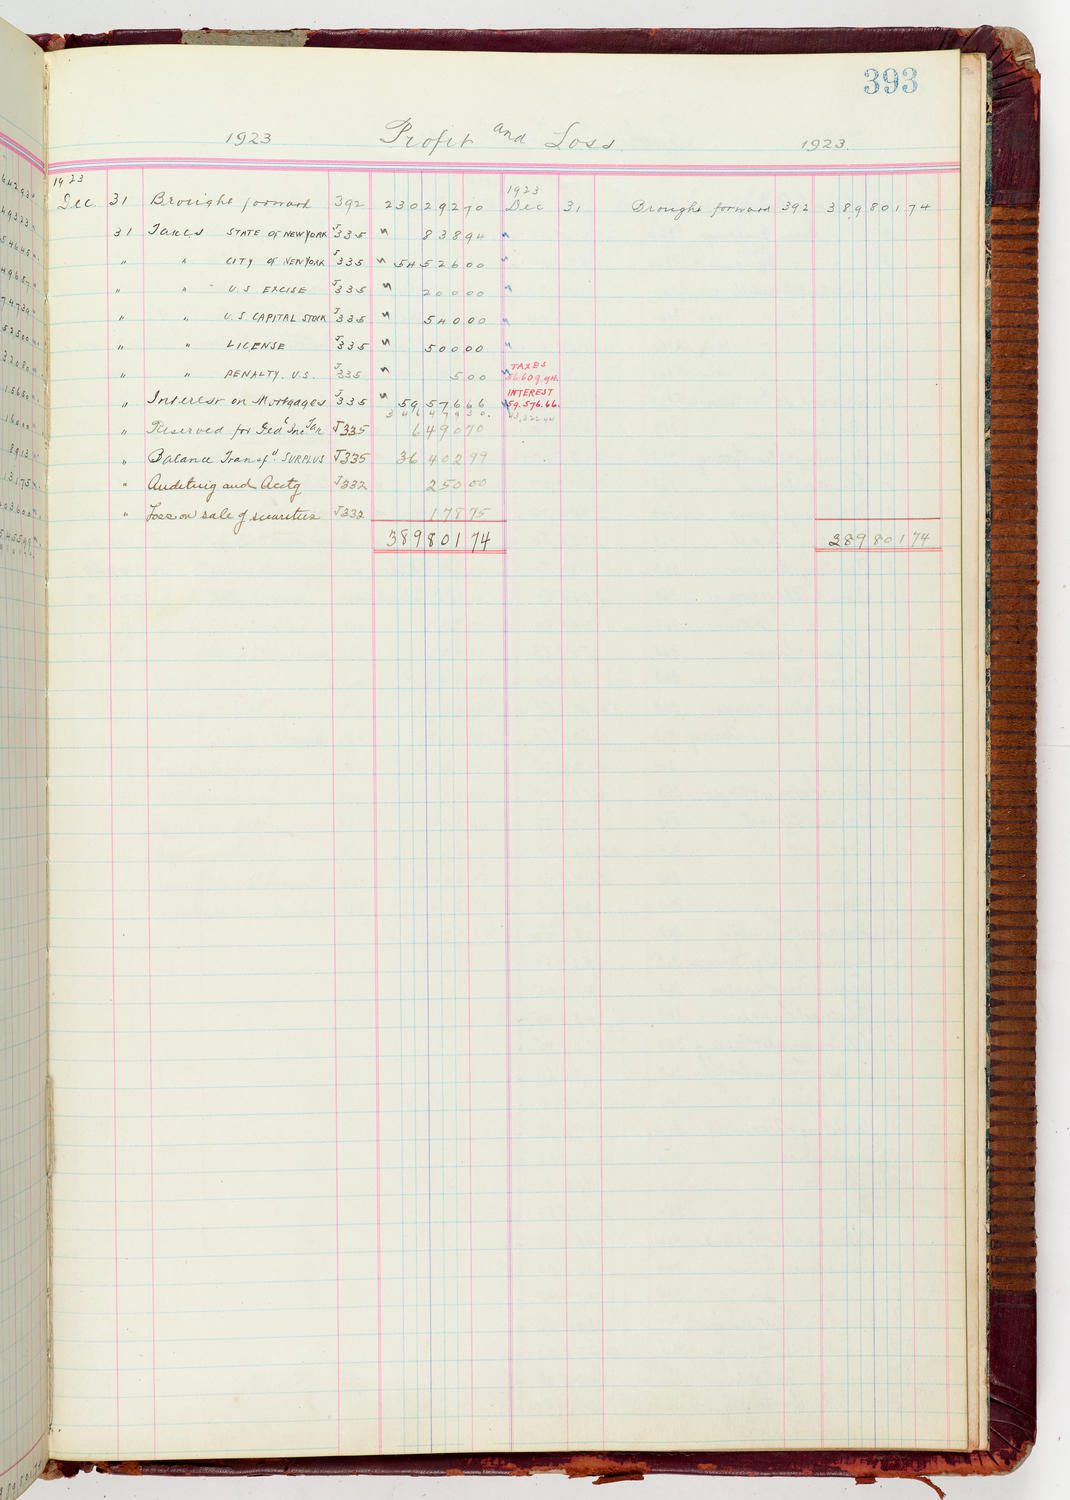 393
1923 Profit and Loss 1923
1923
Dec 31 Brought forward 392 230292 70
31 Taxes STATE OF NEW YORK J335 " 838 94
" " CITY OF NEW YORK J335 " 54526 00
" " U.S EXCISE J335 " 200 00
" " U.S CAPITAL STOCK J335 " 540 00
" " LICENSE J335 " 500 00
" " PENALTY. U.S. J335 " 5 00
" Interest on Mortgages J335 " 59576 66
346479 30.
" Reserved for Fed'l Inc Tax J335 6490 70
" Balance Transf'd. SURPLUS J335 36402 99
" Auditing and Acctg J332 250 00
" Loss on sale of securities J332 178 75
389801 74
1923
Dec 31 Brought forward 392 389801 74
TAXES
56.609.94.
INTEREST
59.576.66.
43,322 44
389801 74